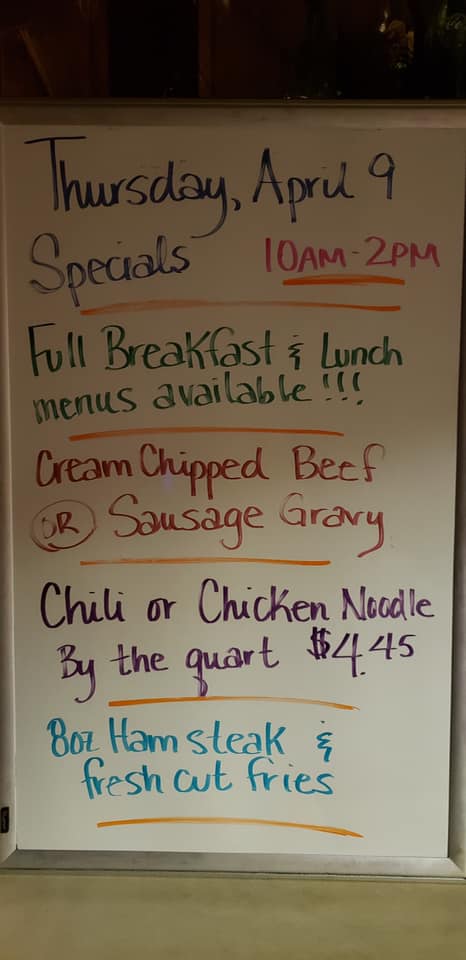 Thursday, April 9
Specials 10AM-2PM
Full Breakfast & Lunch
menus available!!!
Cream Chipped Beef
OR Sausage Gravy
Chili or Chicken Noodle
By the quart $4.45
8oz Ham steak &
fresh cut fries